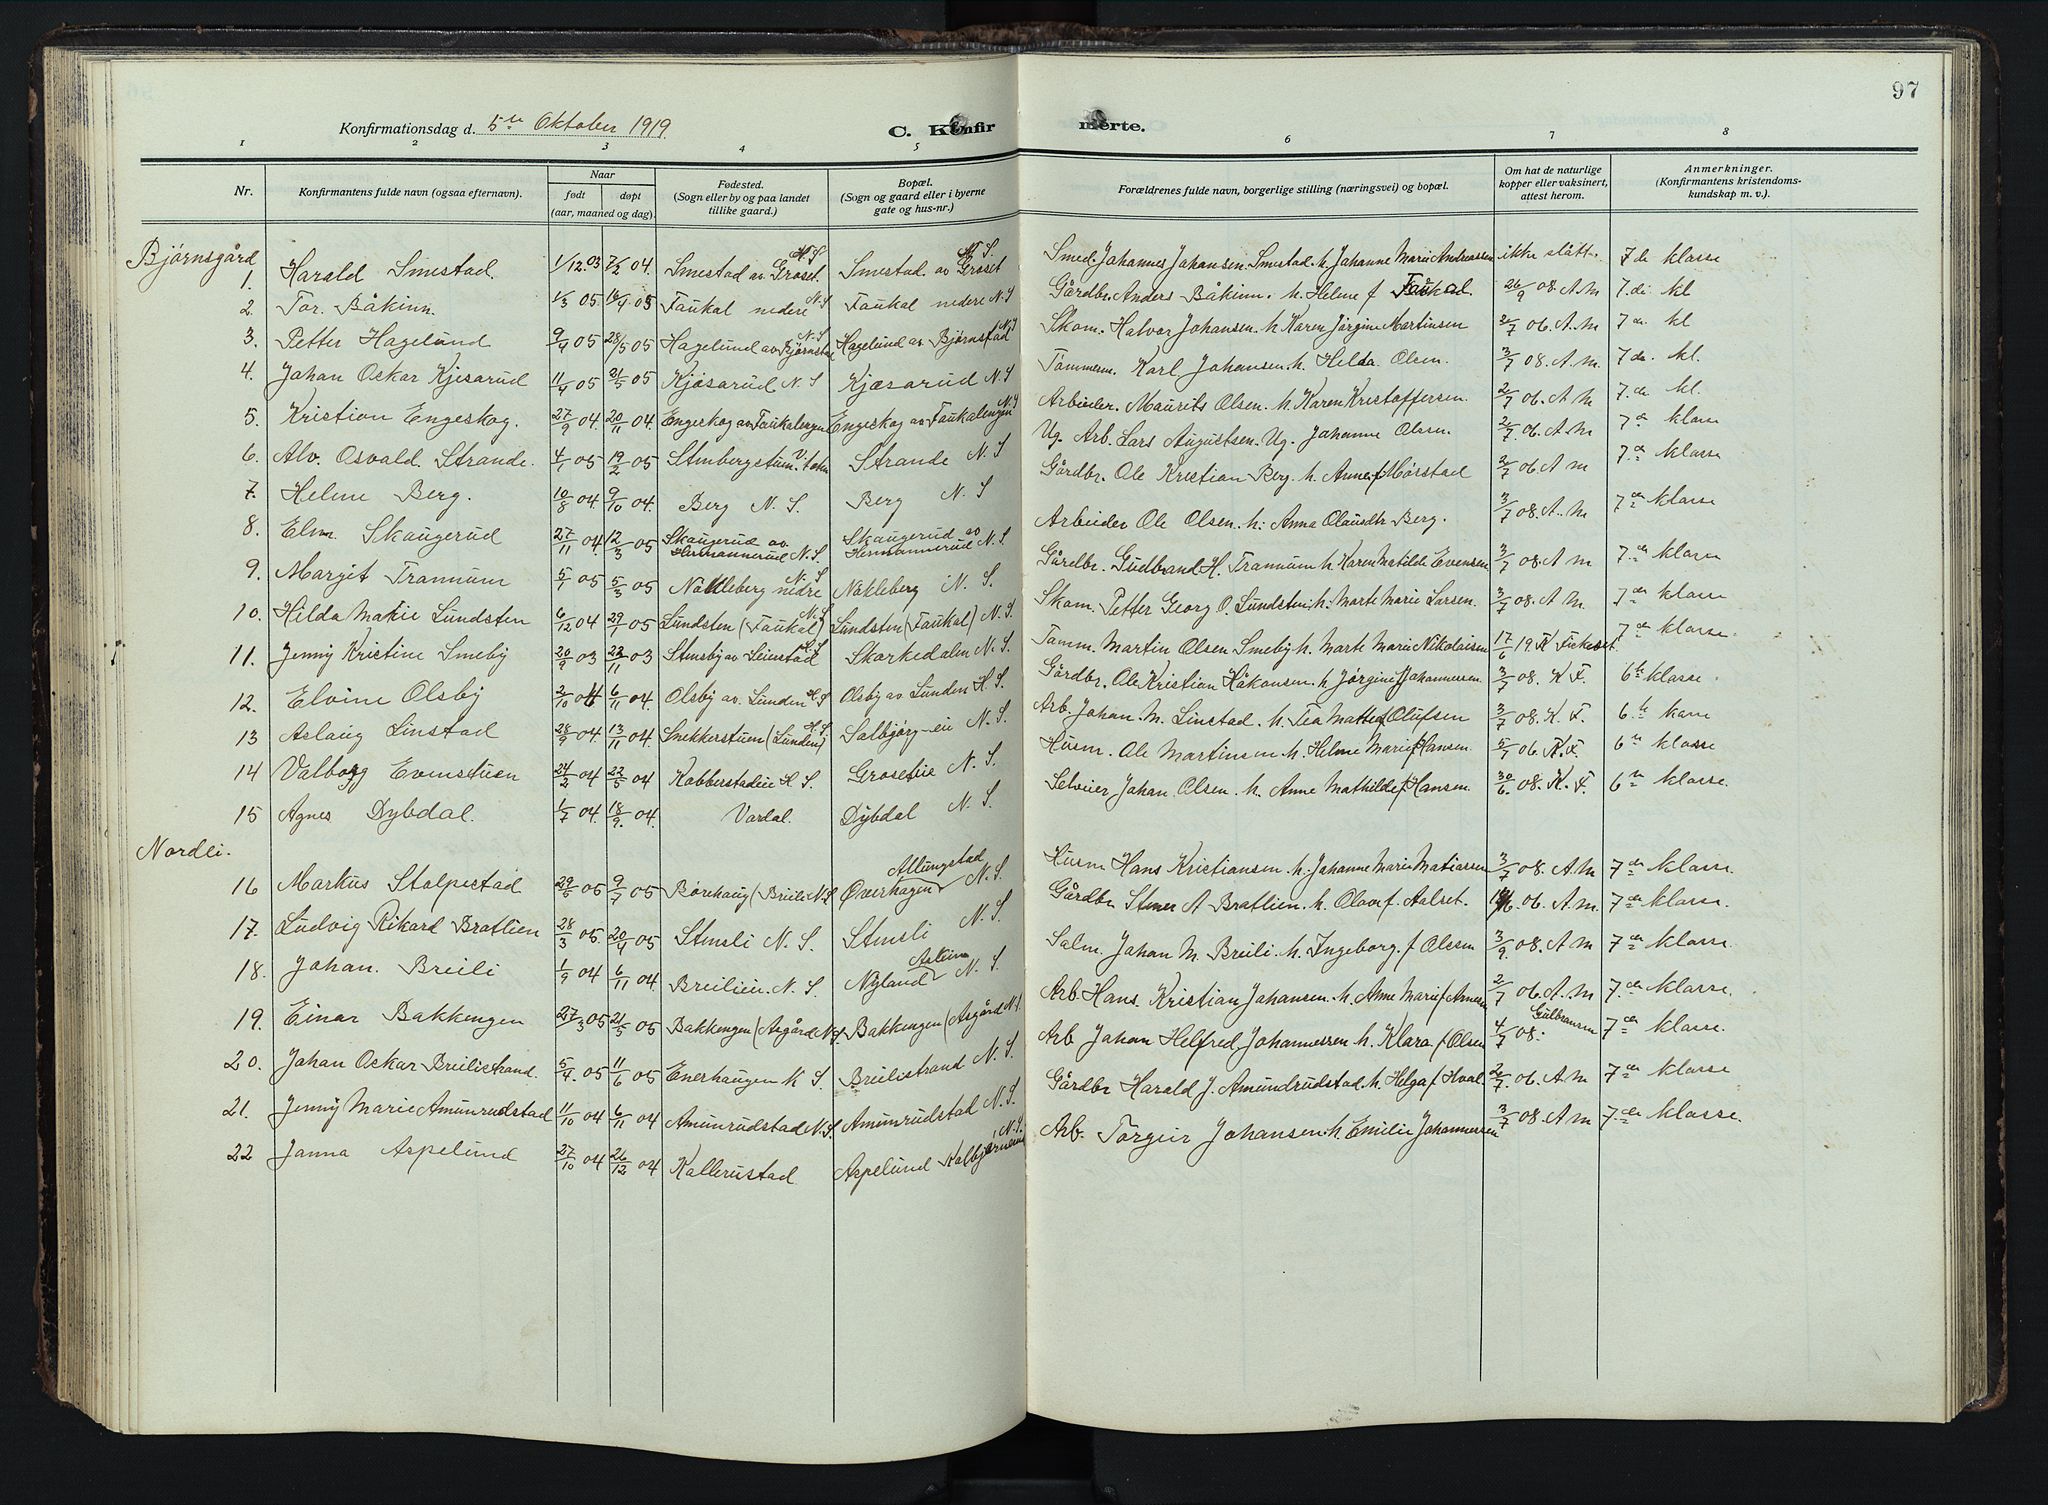 97
Konfirmationsdag d. 5te Oktober 1919
C. Konfirmerte.
1 2 3 4 5 6 7 8
Nr. Konfirmantens fulde navn (ogsaa efternavn). Naar født døpt (aar, maaned og dag). Fødested. (Sogn eller by og paa landet tillike gaard.) Bopæl. (Sogn og gaard eller i byerne gate og hus-nr.) Forældrenes fulde navn, borgerlige stilling (næringsvei) og bopæl. Om hat de naturlige kopper eller vaksinert, attest herom. Anmerkninger. (Konfirmantens kristendomskundskap m. v.).
Bjørnsgård
1. Harald Smestad. 1/12.03 7/2 04. Smestad av Groset. N. S. Smestad av Groset N. S. Smed. Johannes Johansen Smestad. h. Johanne Marie Andreassen ikke slått. 7de klasse
2. Tor. Båkinn. 1/3 05 16/4 05 Faukal nedre N. S Faukal nedre N. S Gårdbr. Anders Båkinn. h. Helene f Faukal. 26/9 08. A. M 7.de kl
3. Petter Hagelund 9/4 05 28/5 05 Hagelund av Bjørnstad N. S Hagelund av Bjørnstad N. S Skom. Halvor Johansen. h Karen Jørgine Martinsen 2/7 06. A. M 7de kl
4. Johan Oskar Kjesarud 11/4 05 21/5 05 Kjøsarud N. S Kjæsarud N. S Tømmerm. Karl Johansen. h. Hilda Olsen. 3/7 08. A. M. 7de. kl.
5. Kristian Engeskog. 27/9 04. 20/11 04. Engeskog av Faukalengen Engeskog av Faukalengen N. S Arbeider. Maurits Olsen. h. Karen Kristoffersen. 2/7 06. A M 7.de kl.
6. Alv. Osvald. Strande. 4/1 05 19/2 05 Stenbergstuen. V. toten Strande N. S Ug. Arb. Lars Augustsen. Ug. Johanne Olsen. 2/7. 06. A. M 7de klasse
7. Helene Berg. 10/8 04 9/10 04. Berg N. S. Berg N. S Gårdbr. Ole Kristian Berg. h. Anne f Mørstad 2/7 06. A m 7.de klasse
8. Elm. Skaugerud 27/11 04 12/3 05 Skaugerud av Hermannerud N. S. Skaugerud av Hermannerud N. S. Arbeider Ole Olsen. h. Anna Olausdtr Berg. 3/7 08. A. M 7de klasse
9. Margit Trannum 5/1 05 5/3 05 Nakleberg nedre N. S Nakleberg N. S. Gårdbr. Gudbrand H. Trannum h Karen Matilde Evensen 3/7 08. A m 7.de klasse
10. Hilda Marie Lundsten 6/12 04 29/1 05 Lundsten (Faukal) N. S Lundsten (Faukal) N. S. Skom. Petter Georg O. Lundsten. h. Marte Marie Larsen. 3/7 08. A M. 7de klasse
11. Jenny Kristine Smeby 20/9 03 22/11 03 Stensby av Seierstad Skarkedalen N. S. Tømm. Martin Olsen Smeby. h. Marte Marie Nikolaisen 17/6 19. K 7de klasse.
12. Elvine Olsby 2/10 04 6/11 04. Olsby av. Lunden H. S Olsby av Lunden H. S. Gårdbr. Ole Kristian Håkonsen. h Jørgine f Johannessen. 3/7 08. K F. 6te klasse.
13 Aslaug Linstad 28/9 04. 13/11 04. Snekkerstuen (Lunden) H. S. Salbjørg-eie N. S. Arb. Johan M. Linstad. h. Tea Matte f Olufsen 3/7 08. K. F. 6.te klasse
14 Valborg Evenstuen 24/2 04 22/5 04 Kobberstadeie H. S. Groseteie N. S. Husm. Ole Martinsen h. Helene Marie f Hansen. 5/7 06. K. F. 6te klasse
15 Agnes Dybdal. 1/7 04. 18/9. 04. Vardal. Dybdal N. S. Selveier Johan Olsen. h. Anne Mathilde f Hansen. 30/6. 08. K. F. 6te klasse.
Nordli.
16 Markus Stolpestad 29/5 05 9/7 05 Børehaug (Breili N. S Øverhagen Allungstad N. S. Husm Hans Kristiansen h. Johanne Marie Matiassen 3/7 08. A. M 7de klasse.
17. Ludvig Rikard Bratlien 28/3 05. 20/4 05 Stensli N. S. Stensli N. S. Gårdbr Stener A Bratlien. h. Olave f. Aalset. 06. A. m 7de klasse.
18. Johan. Breili 1/9 04 6/11 04. Breilien. N. S. Nyland N. S. Salm. Johan M. Breili. h. Ingeborg. f Olssen 3/9 08. A M 7de klasse.
19. Einar Bakkengen 27/3 05 21/5 05 Bakkengen (Asgård N. S. Bakkengen (Asgård N. S. Arb. Hans. Kristian Johansen. h. Anne Marie f Arnesen 2/7 06. A. M 7.de klasse.
20. Johan Oskar Breilistrand. 5/4. 05 11/6 05 Enerhaugen K S. Breilistrand N. S. Arb Johan Helfred. Johannessen h. Klara f Olsen 4/7 08. Gulbransen 7de klasse.
21. Jenny Marie Amunrudstad 11/10 04 6/11 04 Amunrudstad N. S. Amunrudstad N. S. Gårdbr Harald J. Amundrudstad. h. Helga f Hval 2/7. 06. A. M 7de klasse
22 Janna Aspelund 27/10 04 26/12 04. Kallerustad Aspelund Kalbjørnerud N. S. Arb. Torgeir Johansen. h Emilie Johannessen 3/7 08. A m 7.de klasse.